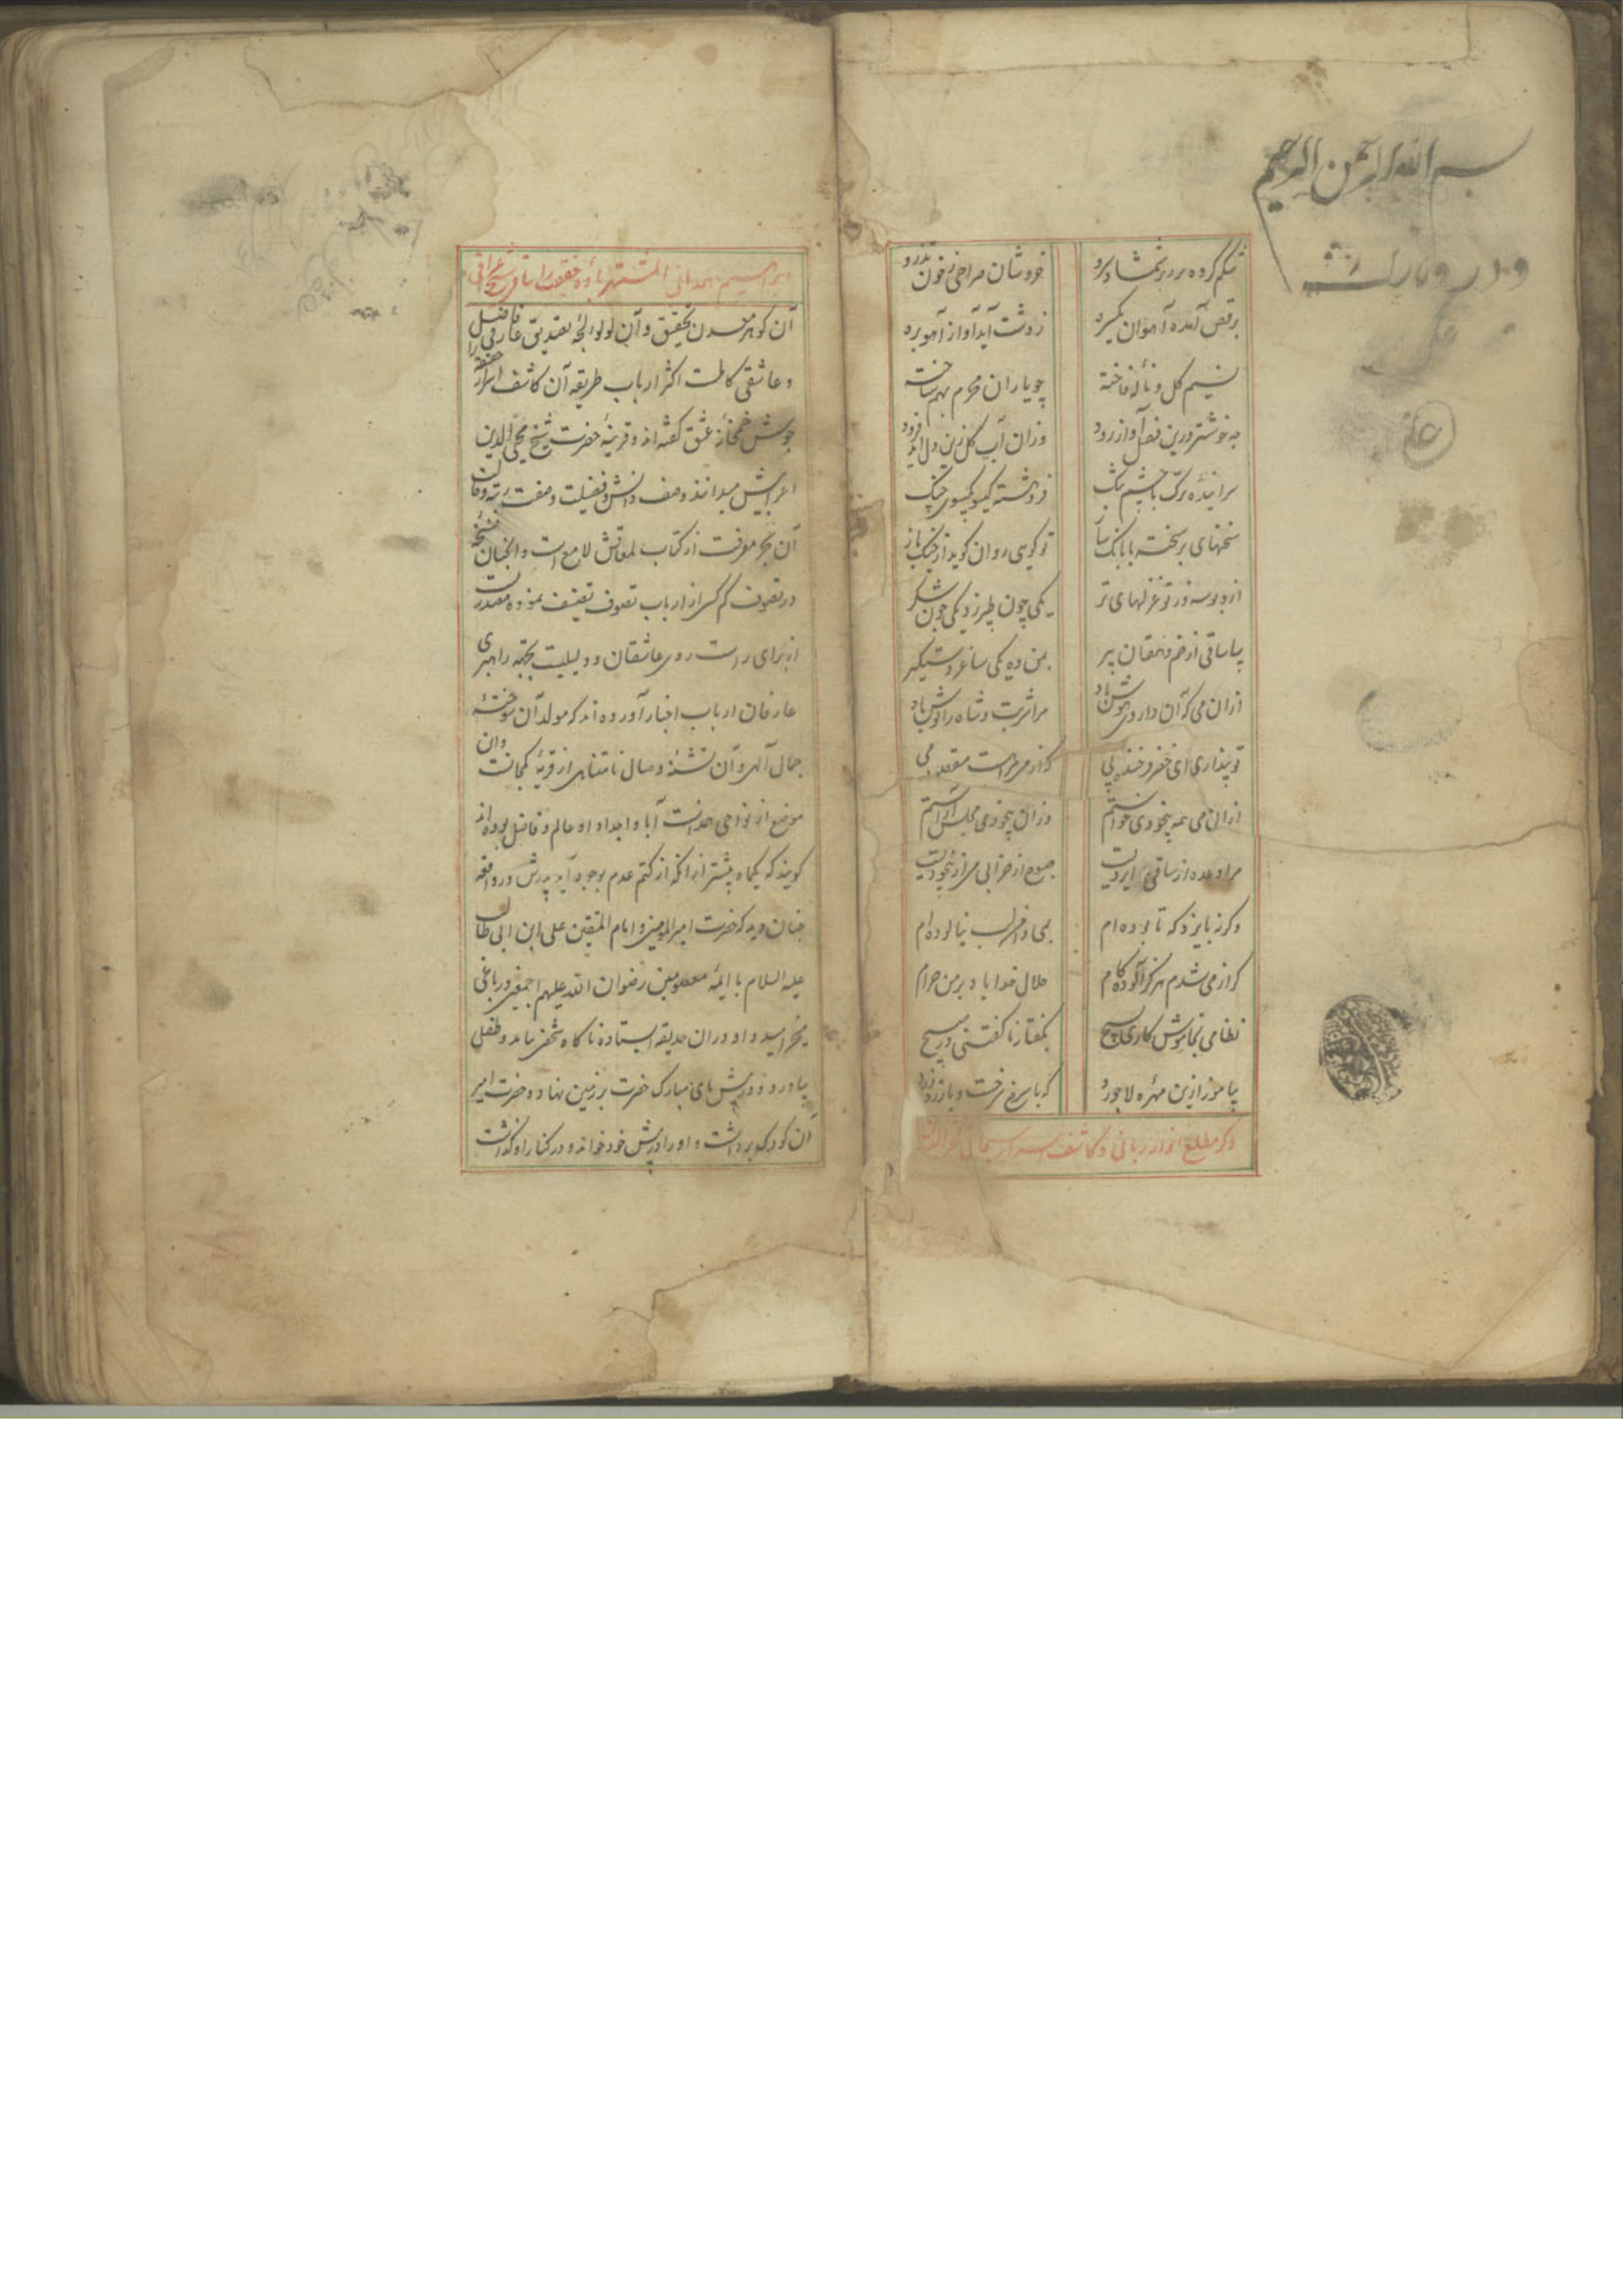 بسم الله الرحمن الرحیم
شکم کرده پر زیر شمشاد و سرو
خروشان صراحی ز خون تذرو
برقص آمده آهوان یکسره
ز دشت آید آواز آهو بره
نسیم گل و نالهٔ فاخته
چو یاران محرم بهم ساخته
چه خوشتر درین فصل آواز رود
وزان آب گل زین دل
سراینده ترک با چشم تنگ
فروهشته گیسو گیسوی چنگ
سخنهای برسخته با بانک ساز
تو گویی روان گوید از چنگ باز
ازو بوسه وز تو غزلهای تر
یکی چون طبرزد یکی چون شکر
بیا ساقی از خم دهقان پیر
بمن ده یکی ساغر دستگیر
ازان می که آن داروی هوش باد
مرا شربت و شاه را نوش باد
تو پنداری ای خضر فرخنده پی
که از می مرا هست مقصود می
ازان می همه بیخودی خواستم
وزان بیخودی مجلس آراستم
مرا وعده از ساقی ایزدیست
صبوح از خرابی می از بیخودیست
وگرنه بایزد که تا بوده‌ام
بمی دامن لب نیالوده‌ام
گر از می شدم هرگز آلوده کام
حلال خدا باد بر من حرام
نظامی بخاموش کاری بسیج
بگفتار ناگفتنی در مپیچ
بیاموز ازین مهره لاجورد
که با سرخ سرخست و با زرد زرد
ذکر مطلع انوار ربانی و کاشف اسرار سبحانی فخرالدین
ابراهیم همدانی المشتهر بعراقی
آن گوهر معدن تحقیق و آن لولو لجهٔ تصدیق عارفی فاضل
و عاشقی کاملست اکثر ارباب طریقه آن کاشف اسرار حقیقة را
جوش خمخانهٔ عشق گفته‌اند و قرینهٔ حضرت شیخ محیی الدین
اعرابیش میدانند وصف دانش و فضیلت و صفت رتبه و حالت
آن بحر معرفت از کتاب لمعاتش لامع است و الخ چنان نسخهٔ
در تصوف کم کسی از ارباب تصوف تصنیف نموده
از برای راست روی عاشقان و دلیلیست بجهة راهبری
عارفان ارباب اخبار آورده‌اند که مولد آن سوختهٔ
جمال آلهی و آن تشنهٔ وصال نامتناهی از قریهٔ کمجانست و آن
موضع از نواحی همدانست آبا و اجداد او عالم و فاضل بوده‌اند
گویند که یکماه پیشتر از آنکه از کتم عدم بوجود آید پدرش در واقعه
چنان دید که حضرت امیرالمومنین و امام المتقین علی ابن ابی طالب
علیه السلام با ایمهٔ معصومین رضوان الله علیهم اجمعین در باغی
میخرامید و او در آن حدیقه ایستاده ناگاه شخصی بیامد و طفلی
بیاورد و در پیش پای مبارک حضرت بر زمین نهاد و حضرت امیر
آن کودک برداشت و او را در پیش خود خواند و در کنار او گذاشت